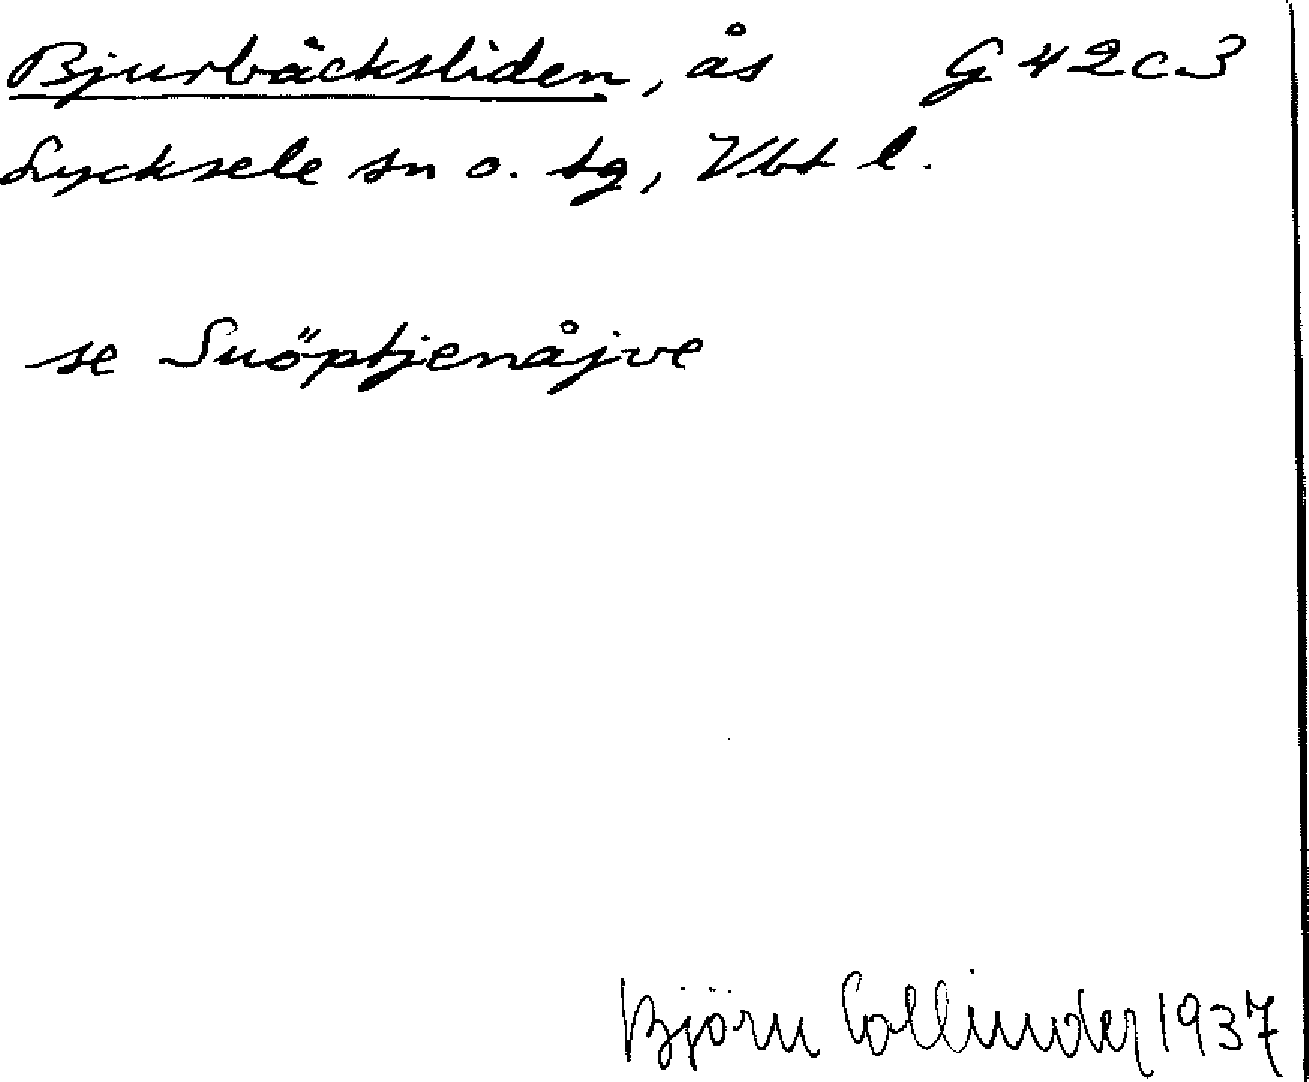 Bjurbäcksliden, ås G 42 c 3
Lycksele sn o. tg, Vbt l.
se Suöptjenåjve
Björn Collinder 1937